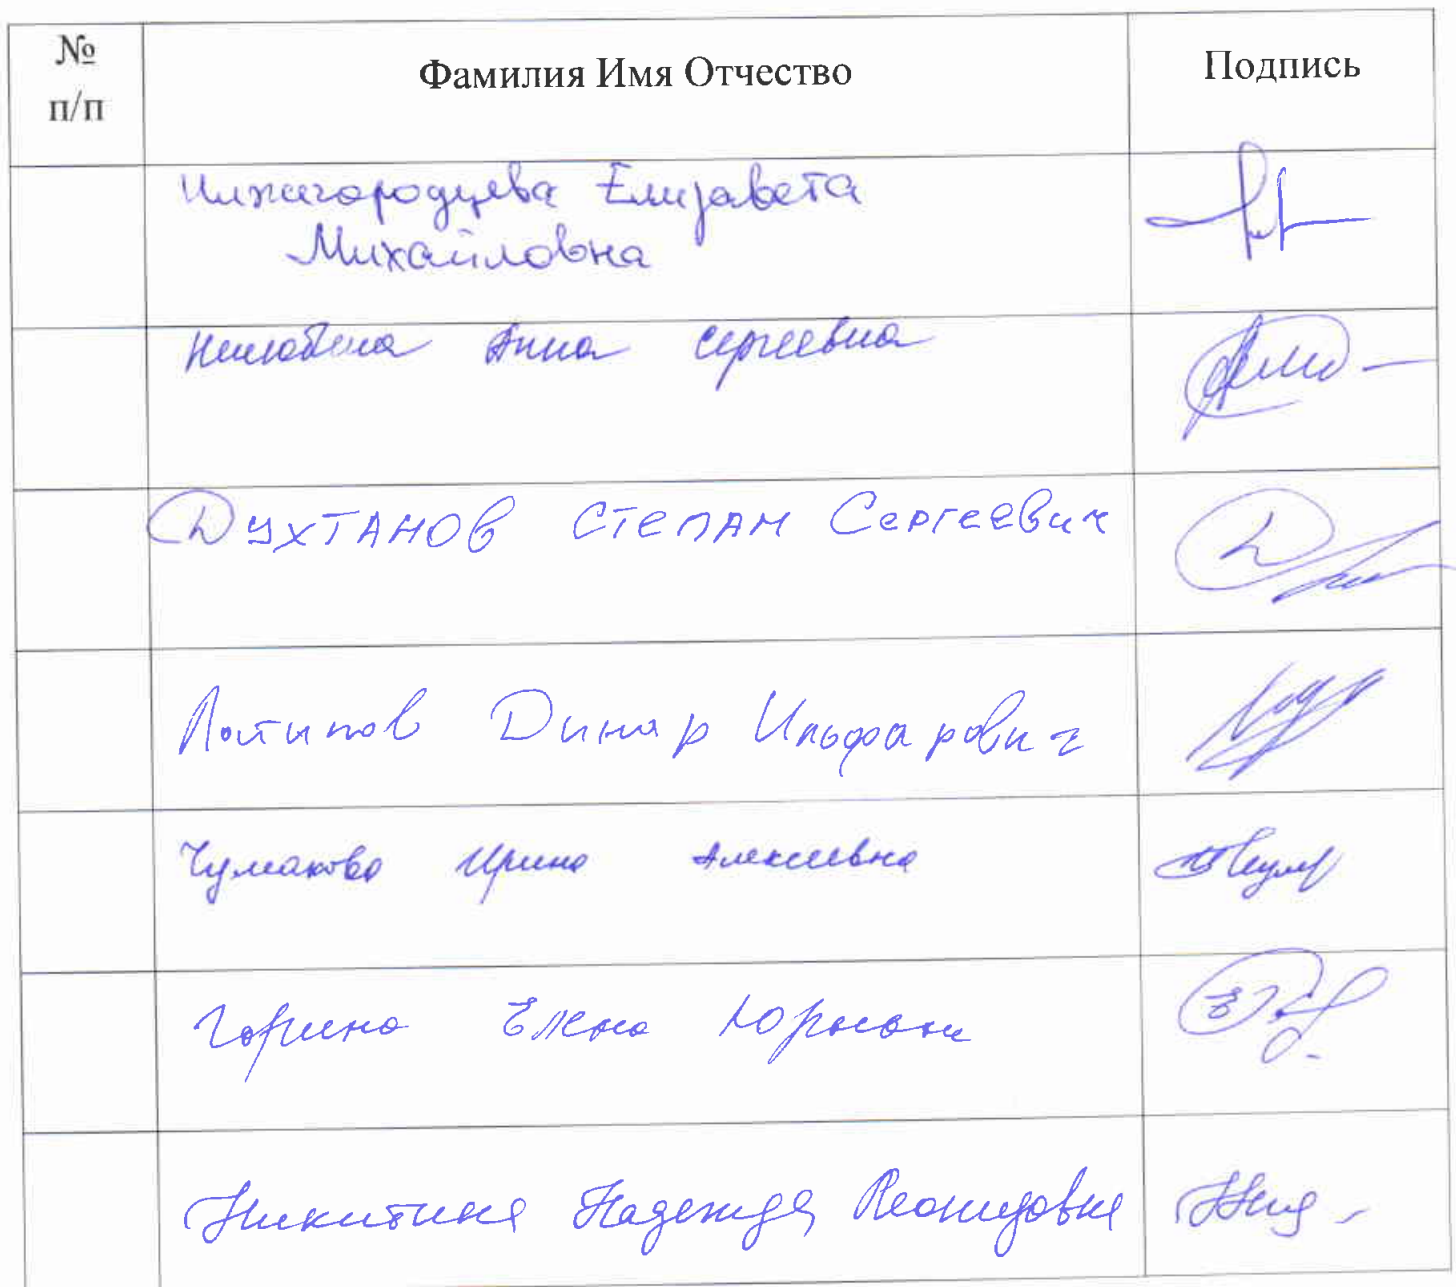 №
п/п
Фамилия Имя Отчество
Подпись
Нижегородцева Елизавета
Михайловна
Нелюбина Анна Сергеевна
Духтанов Степан Сергеевич
Латыпов Динар Ильфарович
Чумакова Ирина Алексеевна
Горина Елена Юрьевна
Никитина Надежда Леонидовна